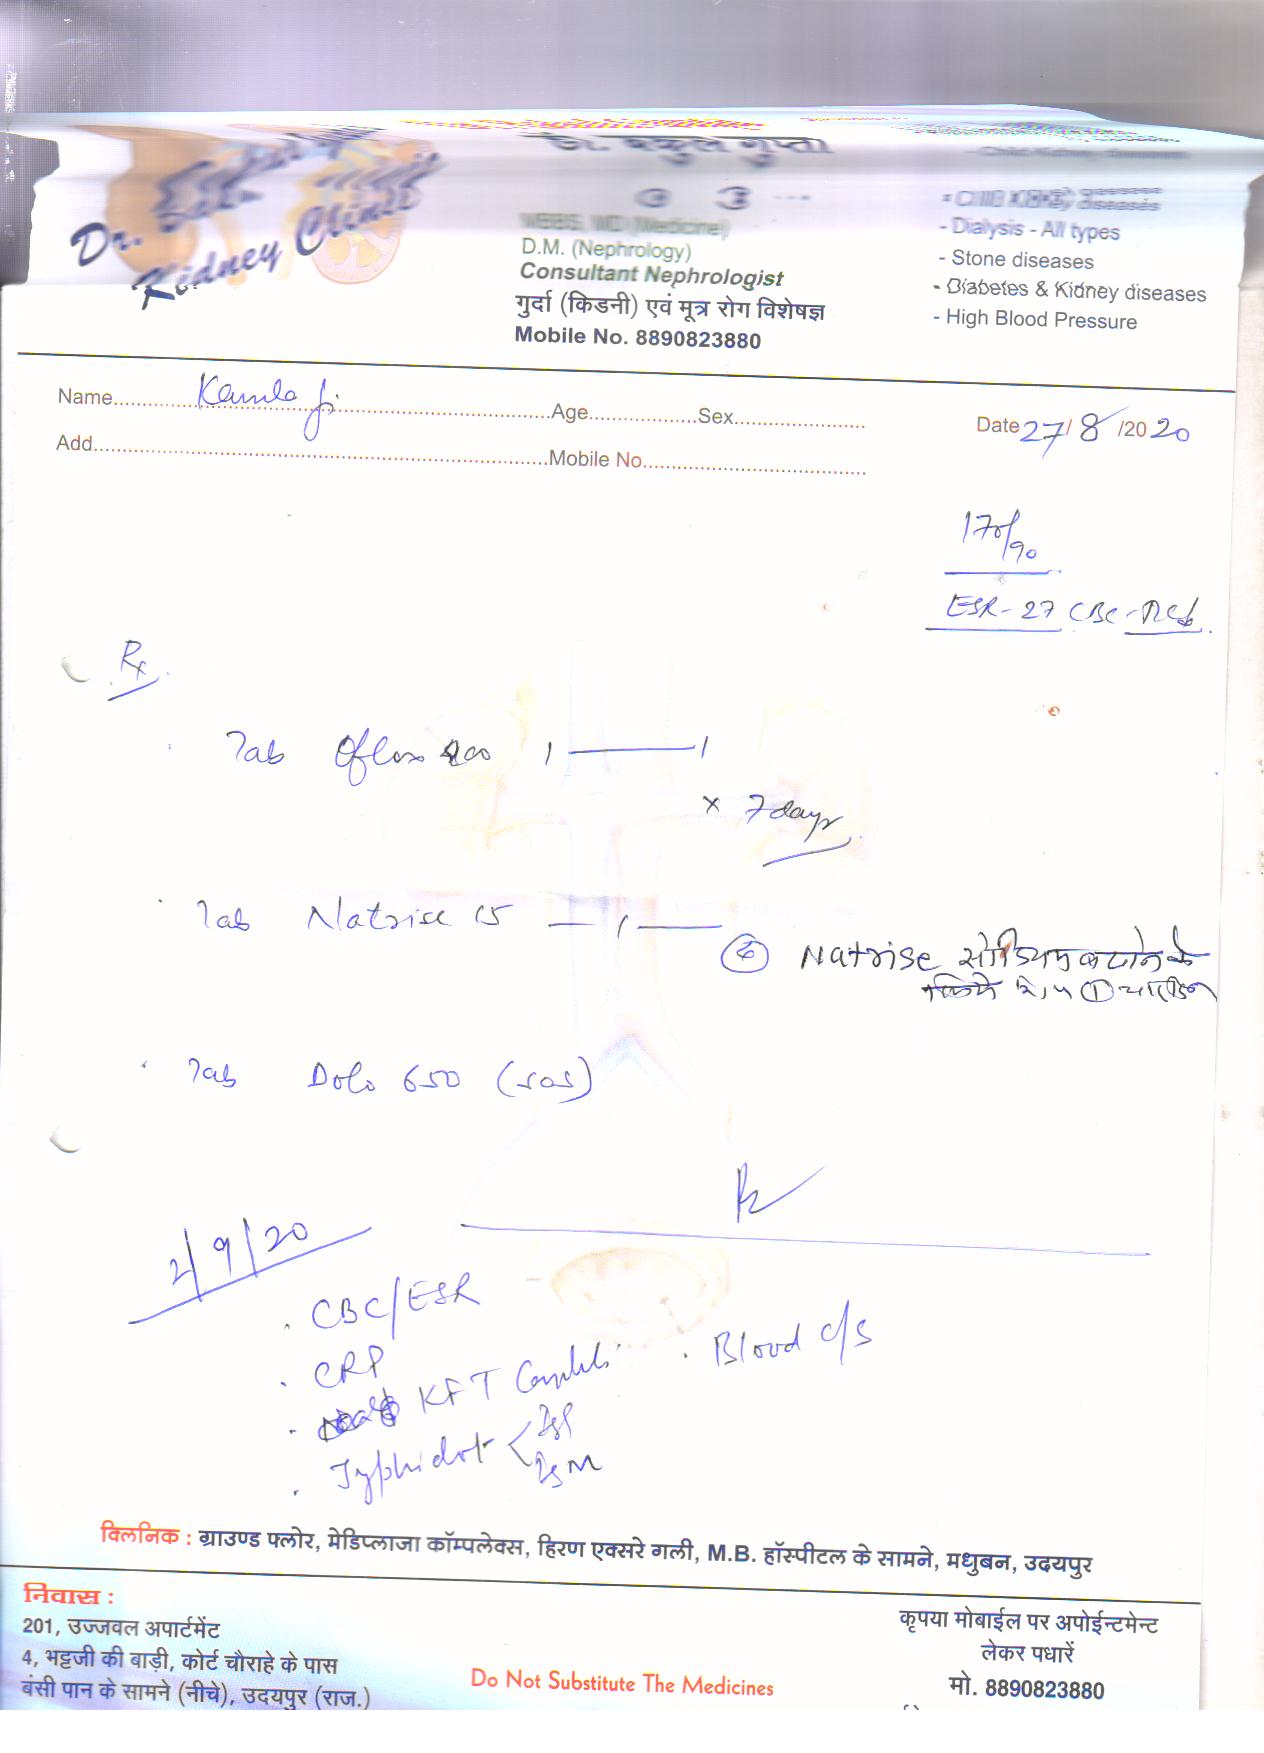 Dr.
Kidney Clinic
डॉ. बकुल गुप्ता
MBBS, MD (Medicine)
D.M. (Nephrology)
Consultant Nephrologist
गुर्दा (किडनी) एवं मूत्र रोग विशेषज्ञ
Mobile No. 8890823880
- Child Kidney diseases
- Dialysis - All types
- Stone diseases
- Diabetes & Kidney diseases
- High Blood Pressure
Name Kamla ji Age Sex Date 27/8/2020
Add Mobile No.
170/90
ESR-27 CBC-
Rx
Tab Oflox 400 1 — 1
x 7 days
Tab Natrise 15 — 1 —
Natrise सोडियम बढाने के
लिये है, ① 
Tab Dolo 650 (SOS)
2/9/20
. CBC/ESR
. CRP . Blood c/s
. KFT Complete
. Typhidot < IgG
IgM
क्लिनिक : ग्राउण्ड फ्लोर, मेडिप्लाजा कॉम्पलेक्स, हिरण एक्सरे गली, M.B. हॉस्पीटल के सामने, मधुबन, उदयपुर
निवास :
201, उज्जवल अपार्टमेंट
4, भट्टजी की बाड़ी, कोर्ट चौराहे के पास
बंसी पान के सामने (नीचे), उदयपुर (राज.)
Do Not Substitute The Medicines
कृपया मोबाईल पर अपोईन्टमेन्ट
लेकर पधारें
मो. 8890823880